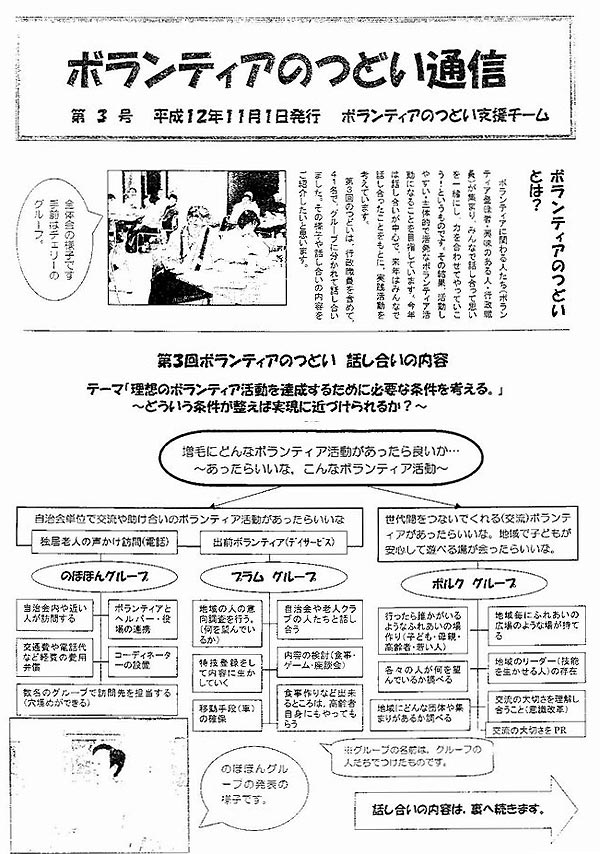 ボランティアのつどい通信
第 3 号 平成12年11月1日発行 ボランティアのつどい支援チーム
ボランティアのつどい
とは?
ボランティアに関わる人たち(ボラン
ティア登録者・興味のある人・行政職
員)が集まり、みんなで話し合って思い
を一緒にし、力を合わせてやっていこ
う!というものです。その結果、活動し
やすい・主体的で活発なボランティア活
動になることを目指しています。今年
は話し合いが中心で、来年はみんなで
話し合ったことをもとに、実践活動を
考えています。
第3回のつどいは、行政職員を含めて、
41名で、グループに分かれて話し合い
ました。その様子や話し合いの内容を
ご紹介したいと思います。
全体会の様子です
手前はチェリーの
グループ。
第3回ボランティアのつどい 話し合いの内容
テーマ「理想のボランティア活動を達成するために必要な条件を考える。」
~どういう条件が整えば実現に近づけられるか?~
増毛にどんなボランティア活動があったら良いか…
~あったらいいな、こんなボランティア活動~
自治会単位で交流や助け合いのボランティア活動があったらいいな
独居老人の声かけ訪問(電話)
出前ボランティア(デイサービス)
世代間をつないでくれる(交流)ボランテ
ィアがあったらいいな。地域で子どもが
安心して遊べる場が会ったらいいな。
のほほんグループ
自治会内や近い
人が訪問する
ボランティアと
ヘルパー・役
場の連携
交通費や電話代
など経費の費用
弁償
コーディネータ
ーの設置
数名のグループで訪問先を担当する
(穴埋めができる)
プラム グループ
地域の人の意
向調査を行う。
(何を望んでい
るか)
自治会や老人クラ
ブの人たちと話し
合う
特技登録をし
て内容に生か
していく
内容の検討(食事・
ゲーム・座談会)
移動手段(車)
の確保
食事作りなど出来
るところは、高齢者
自身にもやっても
らう
ポルク グループ
行ったら誰かがいる
ようなふれあいの場
作り(子ども・母親・
高齢者・若い人)
地域毎にふれあいの
広場のような場が持て
る
各々の人が何を望ん
でいるか調べる
地域のリーダー(技能
を生かせる人)の存在
地域にどんな団体や
集まりがあるか調べる
交流の大切さを理解し
合うこと(意識改革)
交流の大切さをPR
※グループの名前は、グループの
人たちでつけたものです。
のほほんグル
ープの発表の
様子です。
話し合いの内容は、裏へ続きます。